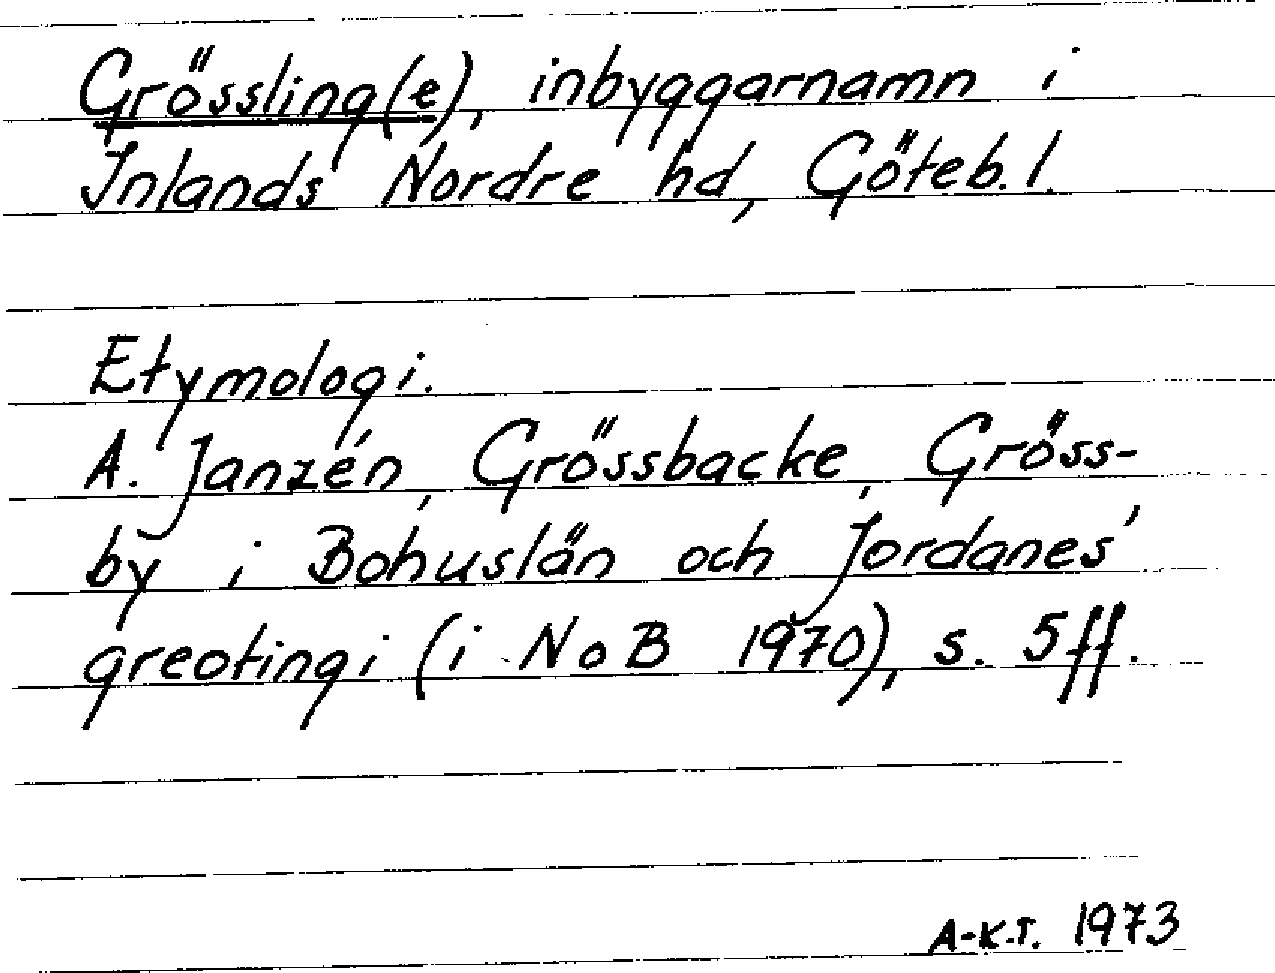 Grössling(e), inbyggarnamn i
Inlands Nordre hd, Göteb. l.
Etymologi.
A. Janzén, Grössbacke, Gröss-
by i Bohuslän och Jordanes'
greotingi (i NoB 1970), s. 5ff.
A-K.T. 1973